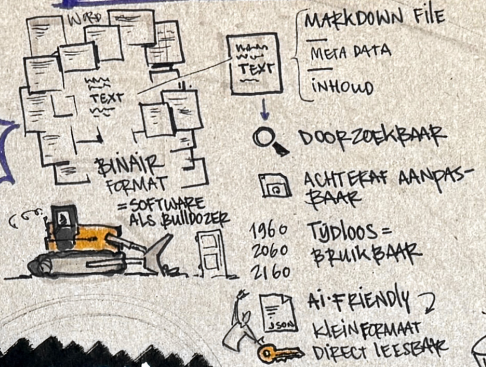 WORD
TEXT
BINAIR
FORMAT
= SOFTWARE
ALS BULLDOZER
TEXT
MARKDOWN FILE
META DATA
INHOUD
DOORZOEKBAAR
ACHTERAF AANPAS-
BAAR
1960
2060
2160
TIJDLOOS =
BRUIKBAAR
JSON
AI-FRIENDLY
KLEIN FORMAAT
DIRECT LEESBAAR